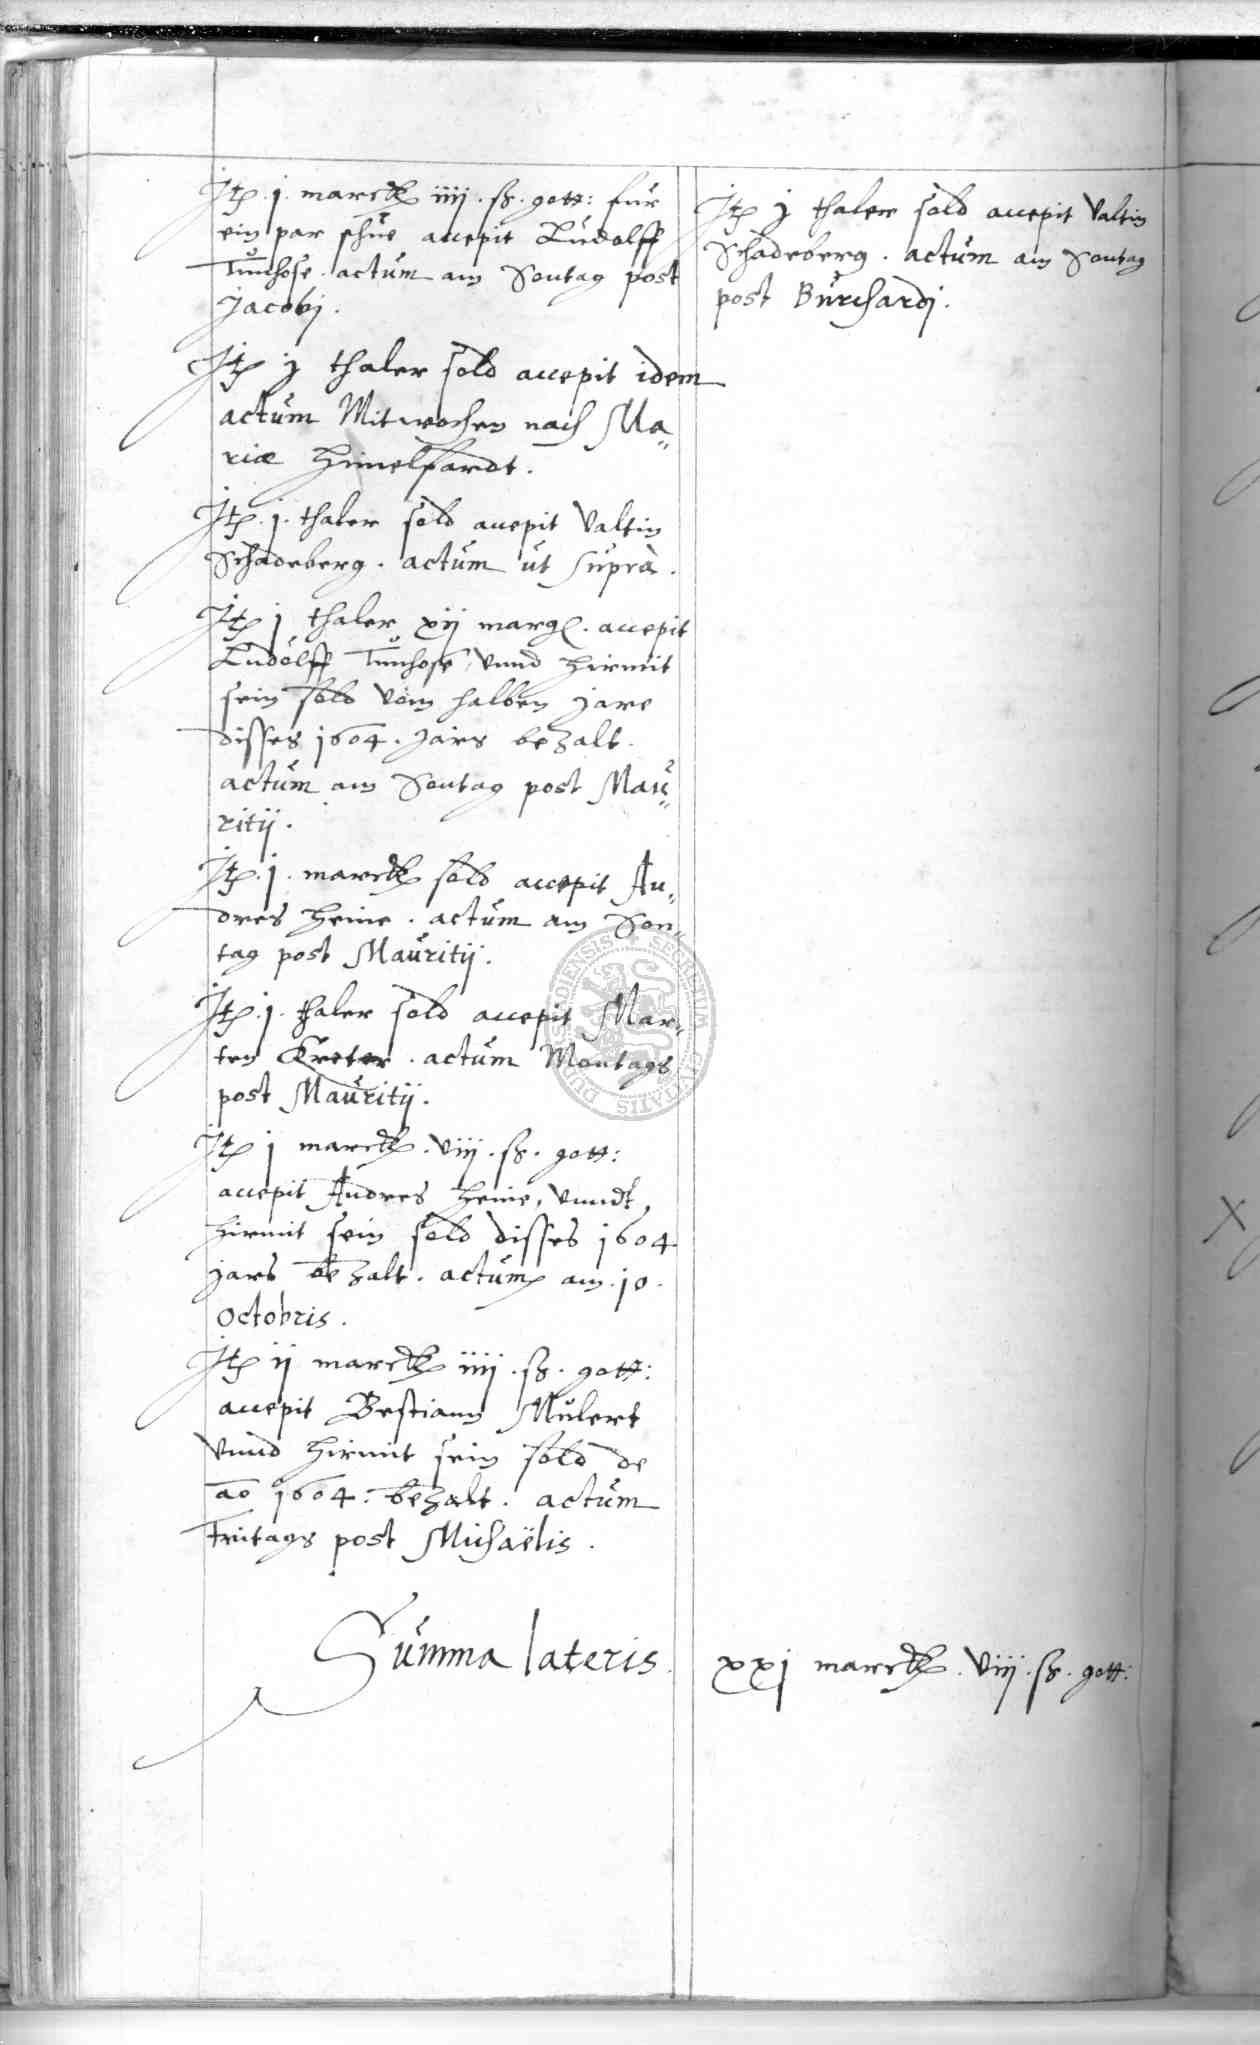 Jtem .j. marck iiij . ß . gott: fur
ein par schue accepit Ludolff
Tunhose . actum am Sontag post
Jacobj .
Jtem j thaler sold accepit idem
actum Mitwochen nach Ma„
riæ Himelfardt .
Jtem .j. thaler sold accepit Valtin
Schadeberg . actum ut suprà .
Jtem j thaler xij margl . accepit
Ludolff Tunhose , vnnd hirmit
sein sold vom halben jare
disses 1604 . jars bezalt .
actum am Sontag post Mau„
ritij .
Jtem .j. marck sold accepit An„
dres Heine . actum am Son„
tag post Mauritij .
Jtem .j. thaler sold accepit Mar„
ten Kreter . actum Montags
post Mauritij .
Jtem j marck . viij . ß . gott:
accepit Andres Heine , vnndt
hirmit sein sold disses 1604
jars bezalt . actum am . 10 .
Octobris .
Jtem ij marck iiij . ß . gott:
accepit Bestiann Mulert
vnnd hirmit sein sold de
ao 1604 . bezalt . actum
Fritags post Michaëlis .
Summa lateris .
Jtem j thaler sold accepit Valtin
Schadeberg . actum am Sontag
post Burchardj .
xxj marck . viij . ß . gott:
SECRETUM CIVITATIS DUDERSTADIENSIS